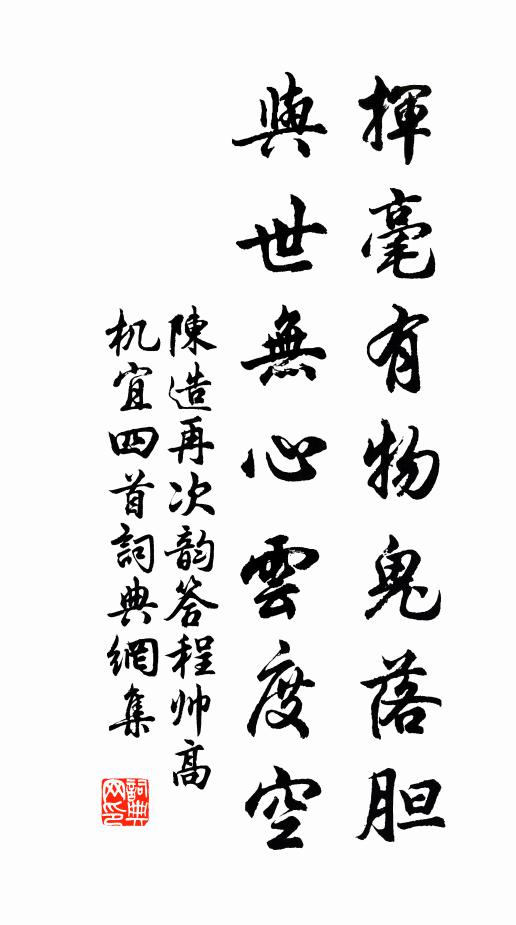 揮毫有物鬼落胆
與世無心雲度空
陳造再次韵答程帅高
机宜四首詞典網集
詞典网印